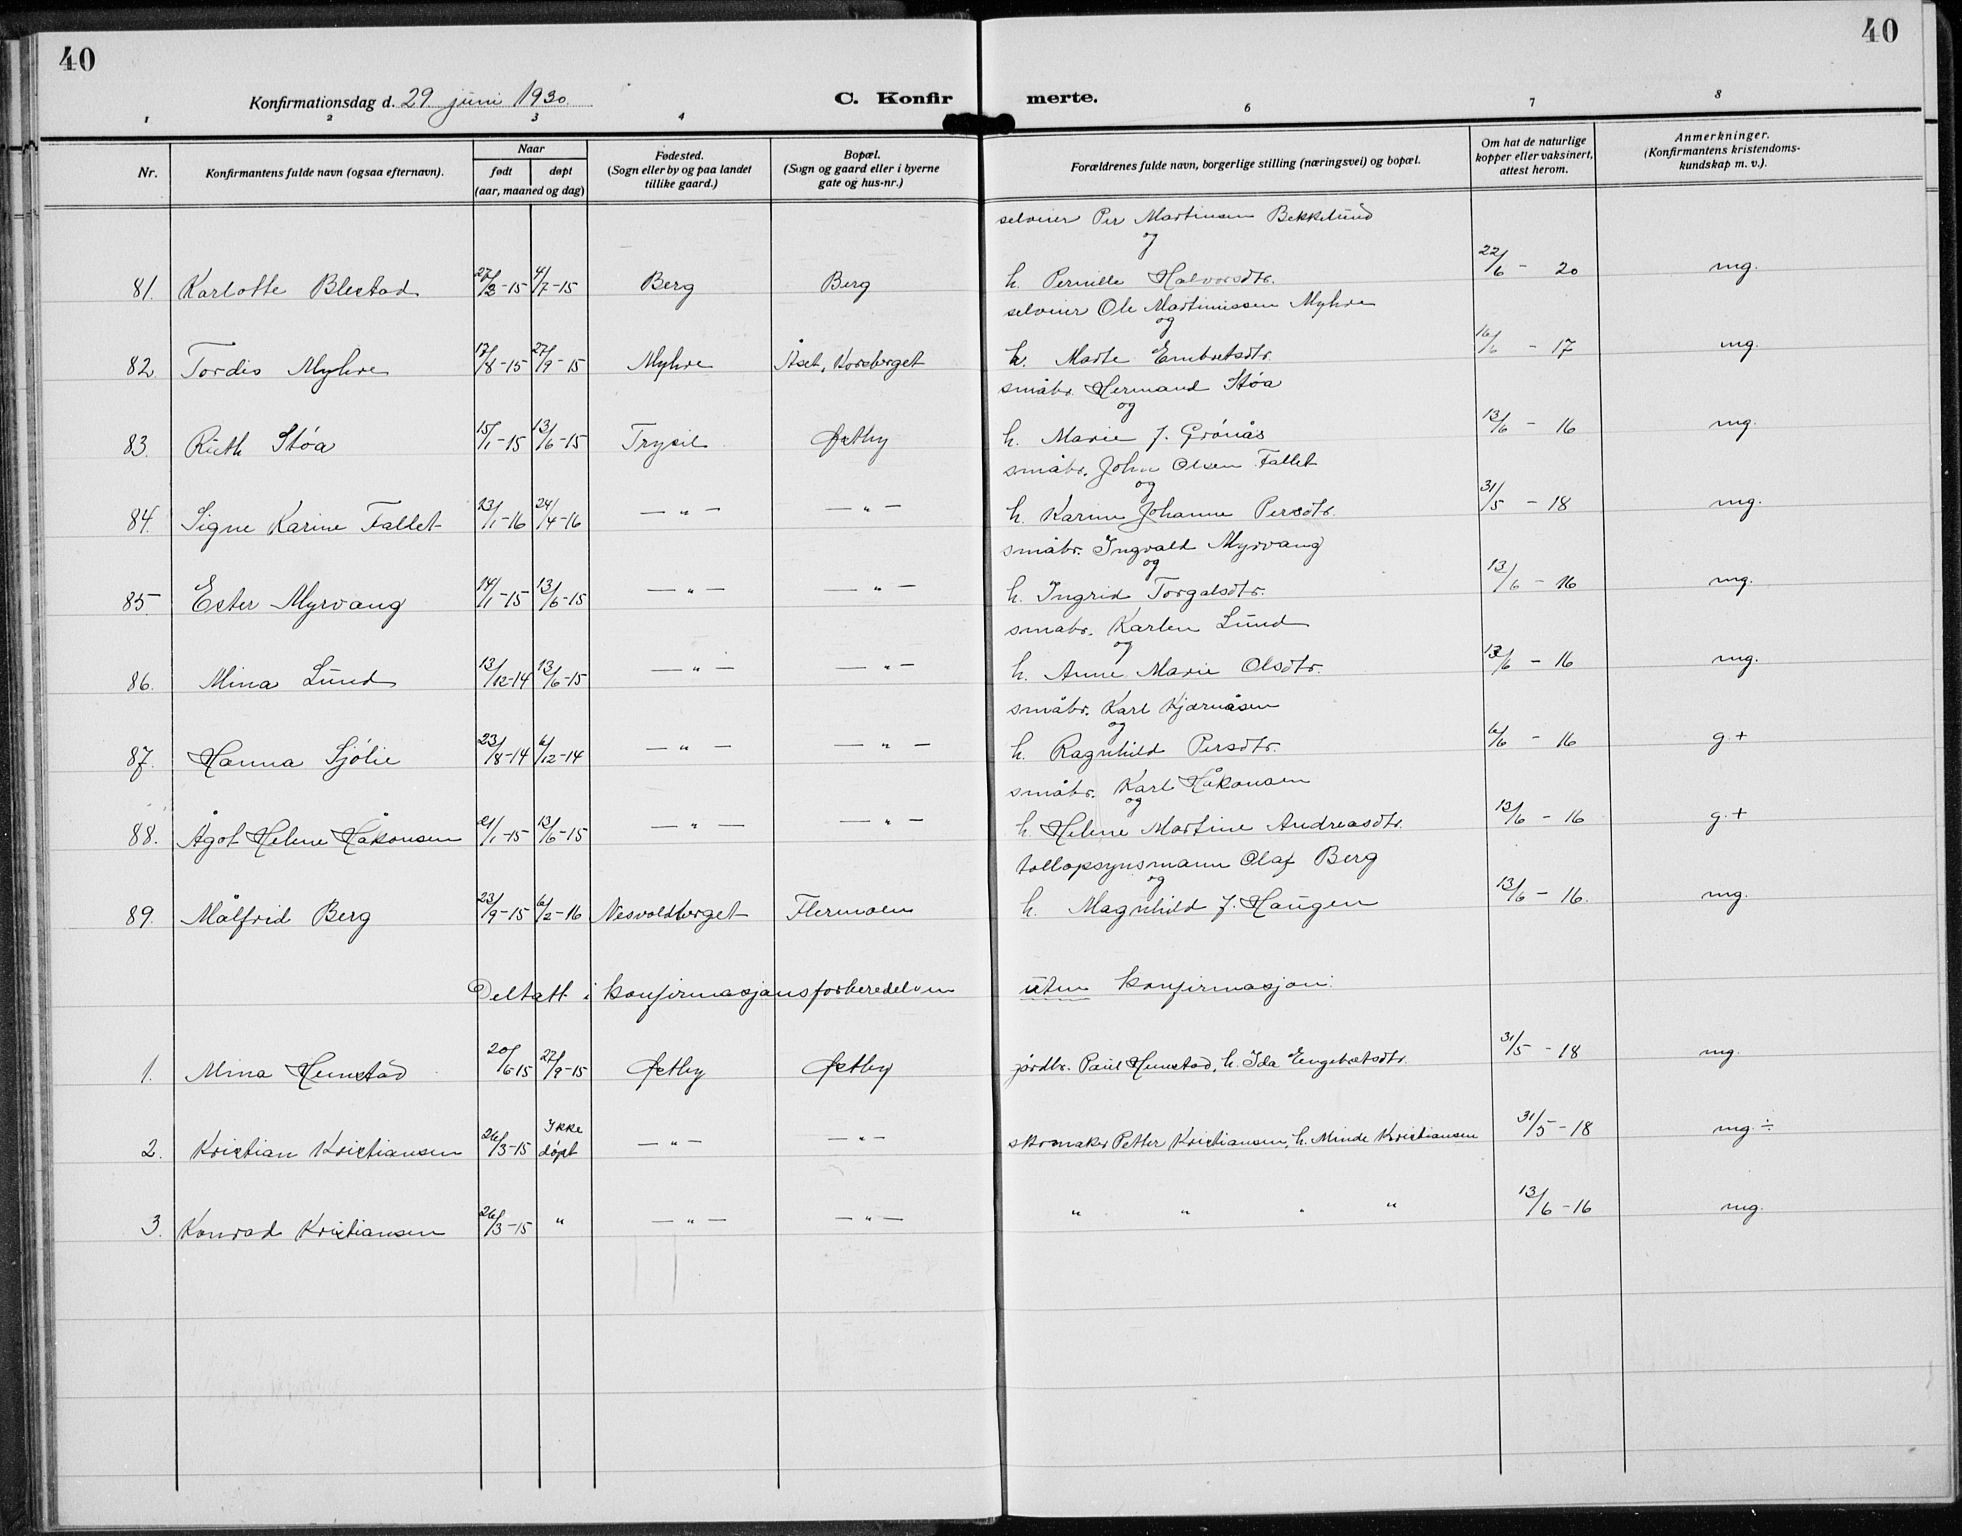 40
40
Konfirmationsdag d. 29 juni 1930.
C. Konfirmerte.
1 2 3 4 6 7 8
Nr.
Konfirmantens fulde navn (ogsaa efternavn).
Naar
født døpt
(aar, maaned og dag)
Fødested.
(Sogn eller by og paa landet
tillike gaard.)
Bopæl.
(Sogn og gaard eller i byerne
gate og hus-nr.)
Forældrenes fulde navn, borgerlige stilling (næringsvei) og bopæl.
Om hat de naturlige
kopper eller vaksinert,
attest herom.
Anmerkninger.
(Konfirmantens kristendoms-
kundskap m. v.).
selveier Per Martinsen Bekkelund
og
81. Karlotte Blestad 4/7-15 Berg Berg h. Pernille Halvorsdtr. 22/6 - 20 mg.
selveier Ole Martinussen Myhre
og
82. Tordis Myhre 17/8-15 27/9-15 Myhre Åset, Korsberget h. Marte Embretsdtr. 16/6 - 17 mg.
småbr. Hermand Støa
og
83. Ruth Støa 15/1-15 13/6-15 Trysil Østby h. Marie J. Grønås 13/6 - 16 mg.
småbr. John Olsen Fallet
og
84. Signe Karine Fallet 23/1-16 24/4-16 — " — — " — h. Karine Johanne Persdtr. 31/5 - 18 mg.
småbr. Ingvald Myrvang
og
85 Ester Myrvang 14/1-15 13/6-15 — " — — " — h. Ingrid Torgalsdtr. 13/6 - 16 mg.
småbr. Karlen Lund
og
86. Mina Lund 13/12-14 13/6-15 — " — — " — h. Anne Marie Olsdtr. 13/6 - 16 mg.
småbr. Karl Kjærnåsen
og
87. Hanna Sjølie 23/8-14 6/12-14 — " — — " — h. Ragnhild Persdtr. 6/6 - 16 g +
småbr. Karl Håkonsen
og
88. Ågot Helene Håkonsen 21/1-15 13/6-15 — " — — " — h. Helene Martine Andreasdtr. 13/6 - 16 g. +
tollopsynsmann Olaf Berg
og
89. Målfrid Berg 23/9-15 6/2-16 Nesvoldberget Flermoen h. Magnhild J. Haugen 13/6 - 16. mg.
Deltatt i konfirmasjonsforberedelsen uten konfirmasjon.
1. Mina Hemstad 20/6-15 27/9-15 Østby Østby jordbr. Paul Hemstad, h. Ida Engebretsdtr. 31/5 - 18 mg.
2. Kristian Kristiansen 26/3-15 Ikke døpt — " — — " — skomaker Petter Kristiansen, h. Minde Kristiansen 31/5 - 18 mg ÷
3. Konrad Kristiansen 26/3-15 " — " — — " — " " " " 13/6 - 16 mg.